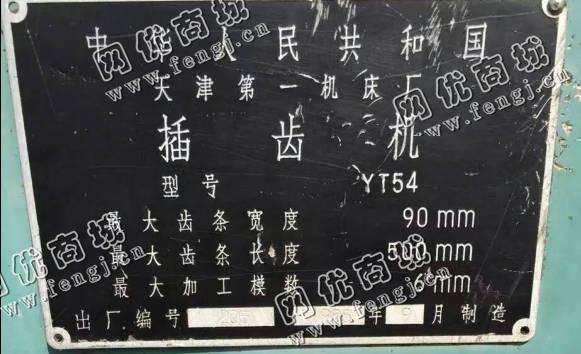 中华人民共和国
天津第一机床厂
插齿机
型号 YT54
最大齿条宽度 90mm
最大齿条长度 500mm
最大加工模数 6mm
出厂编号 年9月制造
网优商城
www.fengj.com
网优商城
www.fengj.com
网优商城
www.fengj.com
网优商城
www.fengj.com